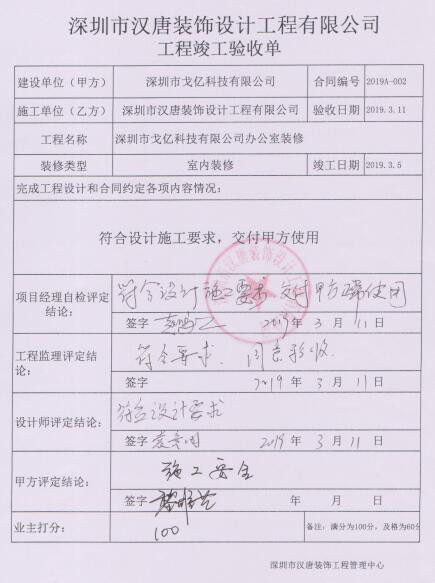 深圳市汉唐装饰设计工程有限公司
工程竣工验收单
建设单位（甲方） 深圳市戈亿科技有限公司 合同编号 2019A-002
施工单位（乙方） 深圳市汉唐装饰设计工程有限公司 验收日期 2019.3.11
工程名称 深圳市戈亿科技有限公司办公室装修
装修类型 室内装修 竣工日期 2019.3.5
完成工程设计和合同约定各项内容情况：
符合设计施工要求，交付甲方使用
项目经理自检评定结论： 符合设计施工要求 交付甲方 使用
签字 2019 年 3 月 11 日
工程监理评定结论： 符合要求、同意验收
签字 2019 年 3 月 11 日
设计师评定结论： 符合设计要求
签字 2019 年 3 月 11 日
甲方评定结论： 施工安全
签字 年 月 日
业主打分： 100 备注：满分为100分，及格为60分
深圳市汉唐装饰工程管理中心